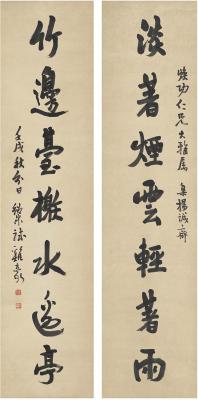 淡著煙雲輕著雨
功仁兄大雅屬 集楊誠齋
竹邊臺榭水邊亭
壬戌秋分日